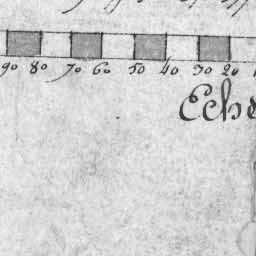 90 80 70 60 50 40 30 20
Eche